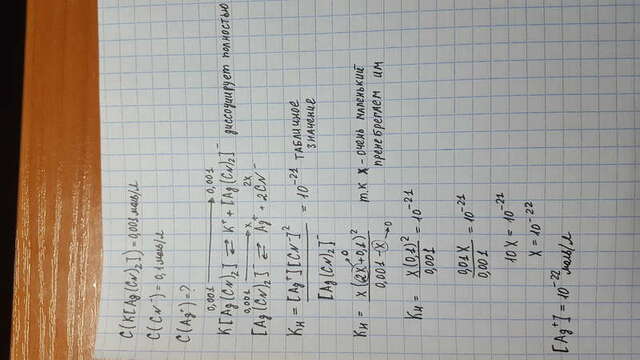 C(K[Ag(CN)₂]) = 0,001 моль/л
C(CN⁻) = 0,1 моль/л
C(Ag⁺) = ?
0,001 → 0,001
K[Ag(CN)₂] ⇄ K⁺ + [Ag(CN)₂]⁻ диссоциирует полностью
0,001 → x 2x
[Ag(CN)₂]⁻ ⇄ Ag⁺ + 2CN⁻
Kн = [Ag⁺][CN⁻]² / [Ag(CN)₂]⁻ = 10⁻²¹ табличное значение
Kн = x(2x+0,1)² / 0,001-x т.к x - очень маленький
→0 →0 пренебрегаем им
Kн = x(0,1)² / 0,001 = 10⁻²¹
0,01x / 0,001 = 10⁻²¹
10x = 10⁻²¹
x = 10⁻²²
[Ag⁺] = 10⁻²² моль/л